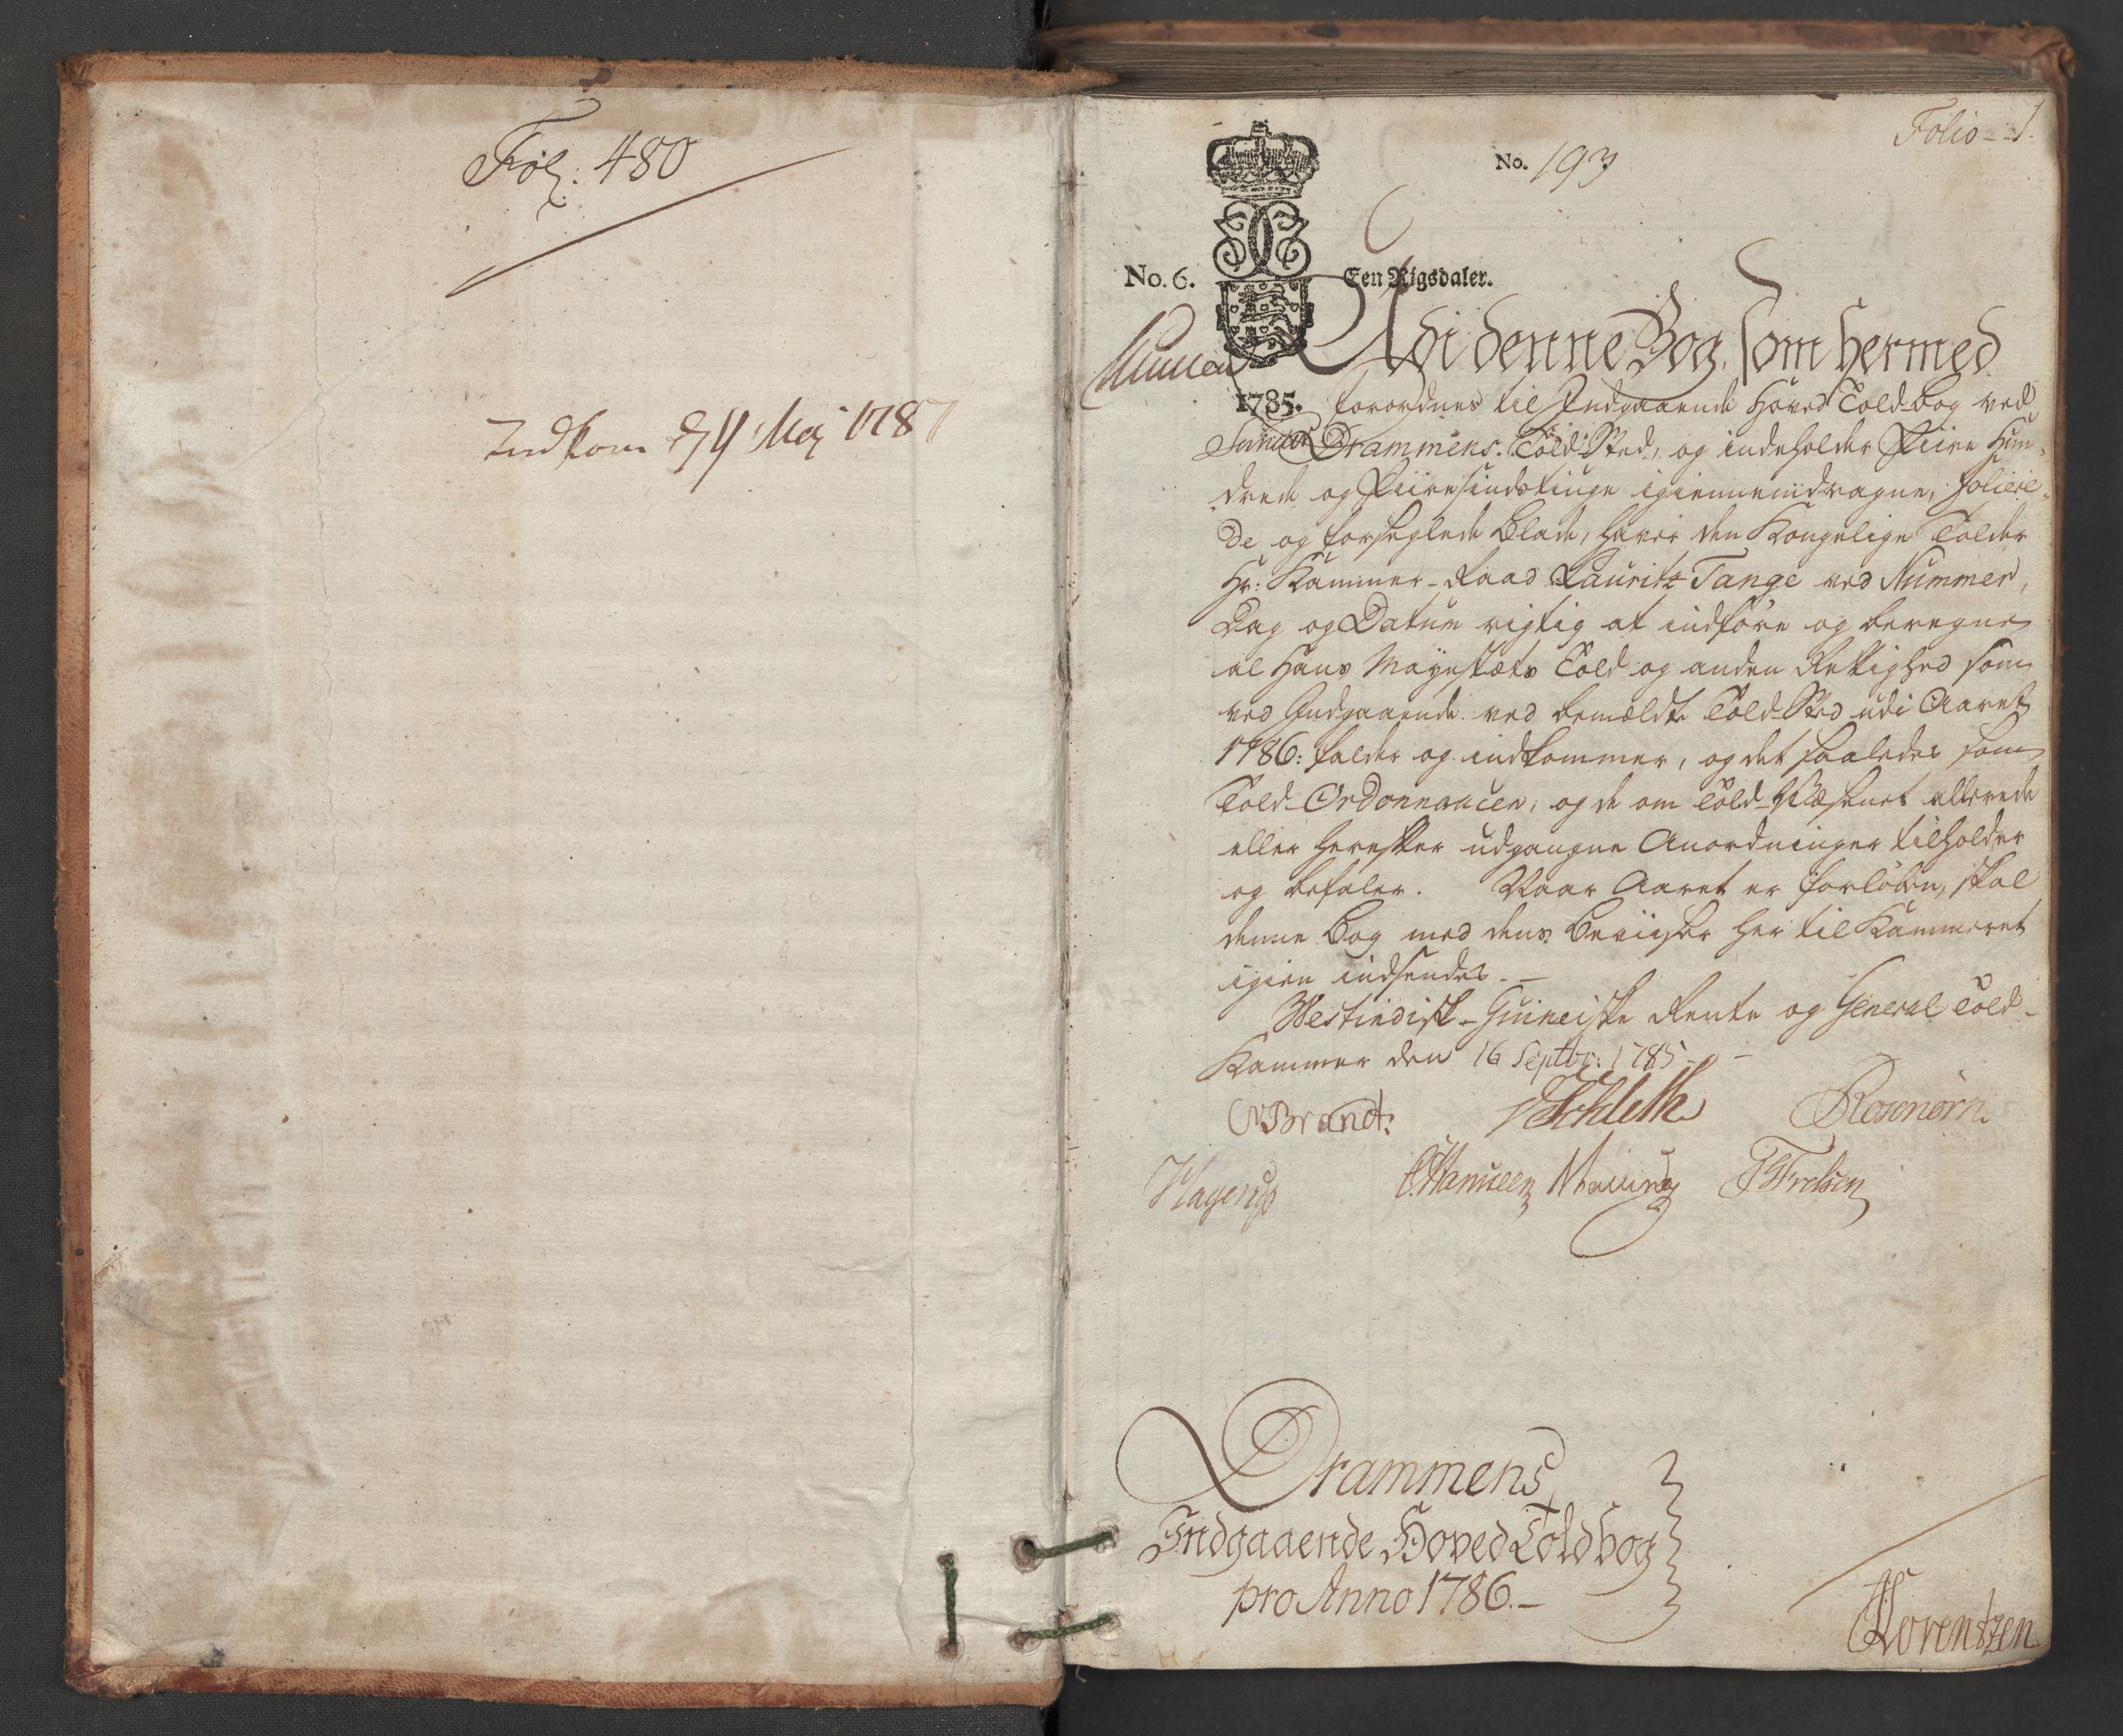 Fol: 480
Indkom d 4 Maj 1787
Folio - 1.
No. 193
No. 6. Een Rigsdaler.
Udi denne Bog, som hermed
1785. forordnes til Indgaaende Hoved Told-Bog ved
Drammens Told-Sted, og indeholder Fiire Hun-
drede og Fiiresindstiuge igiennemdragne, foliere-
de og forseglede Blade, haver den Kongelige Tolder
Hr: Kammer-Raad Lauritz Tange ved Nummer,
Dag og Datum rigtig at indføre og beregne
al Hans Mayestæts Told og anden Rettighed som
ved Indgaaende ved bemældte Told-Sted udi Aaret
1786: falder og indkommer, og det saaledes som
Told-Ordonnancen, og de om Told-Væsenet allerede
eller herefter udgangne Anordninger tilholder
og befaler. Naar Aaret er forløben, skal
denne Bog med dens Beviiser her til Kammeret
igien indsendes. -
Westindisk-Guineiske Rente og General Told-
Kammer den 16 Septbr: 1785 -
Brandt: Schleth Rosenørn.
Hagerup Malling Frelsen
Drammens
Indgaaende Hoved Told bog
pro Anno 1786. -
Lorentzen